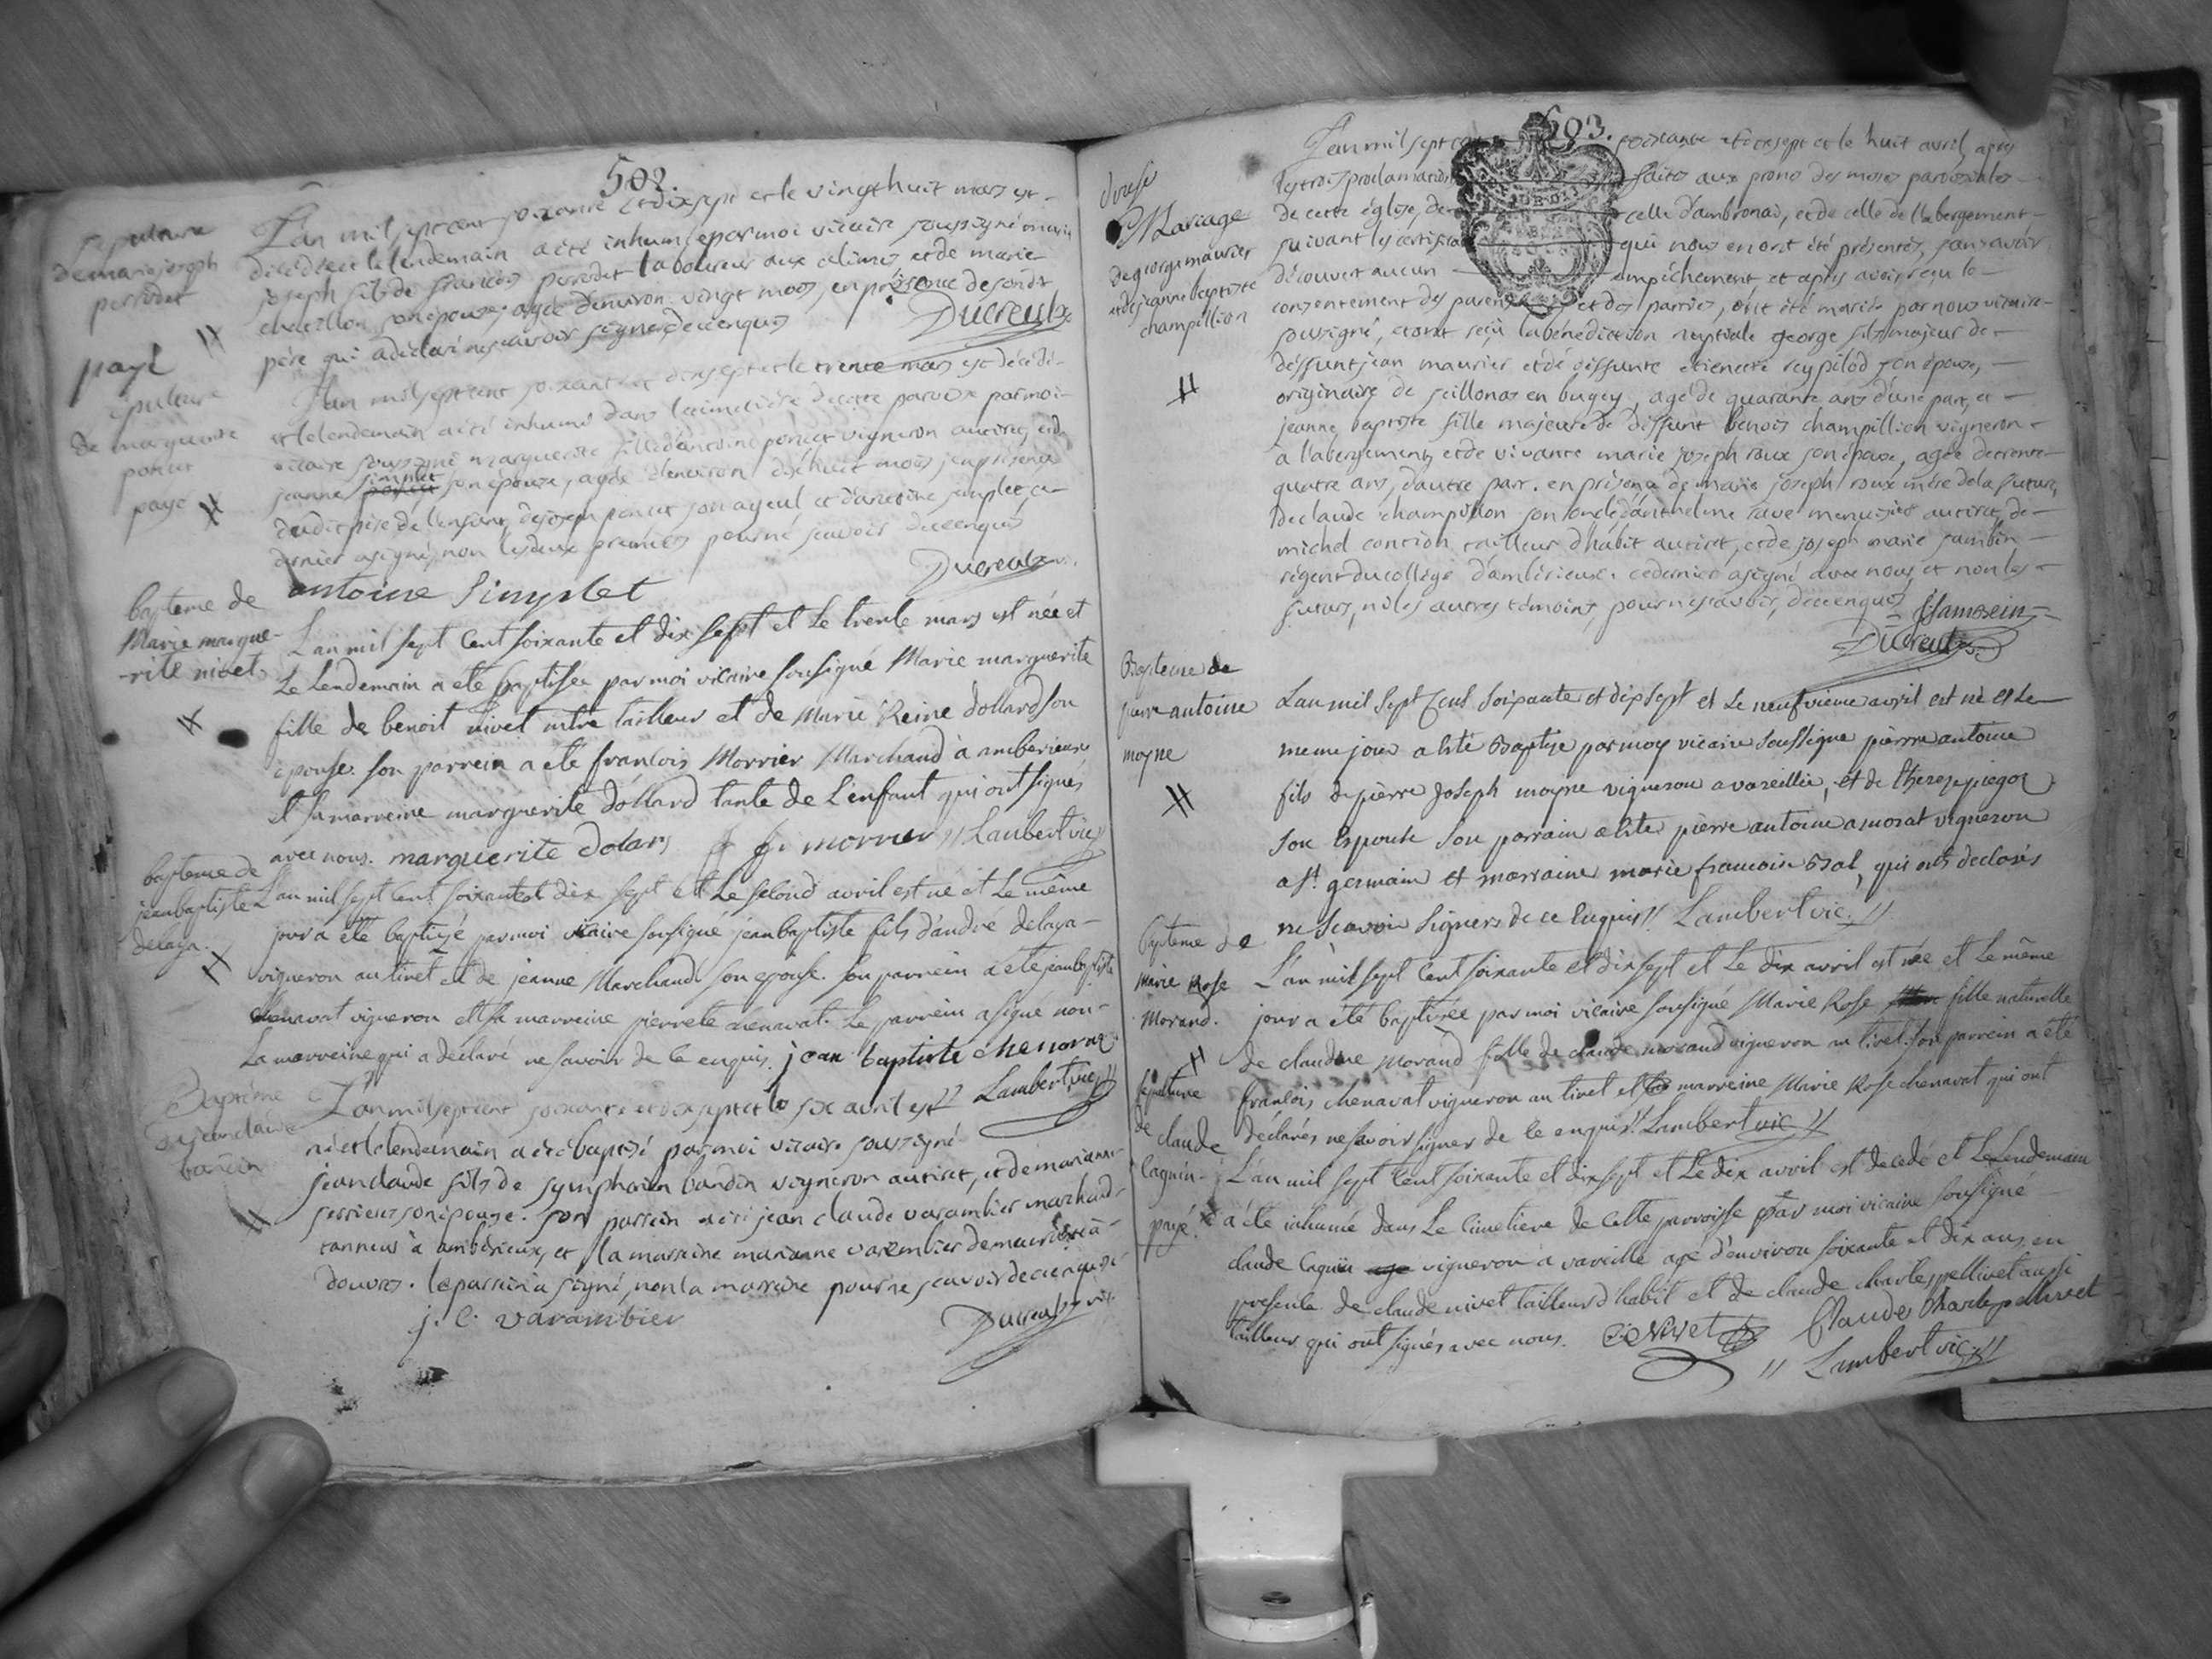 502.
Sepulture
de marie joseph
perrodet
payé
L'an mil sept cent soixante et dix sept et le vingt huit mars est
décédée et le lendemain a été inhumée par moi vicaire soussigné marie
joseph fils de françois perrodet laboureur aux celimes et de marie
chatillon son épouse, agée d'environ vingt mois, en présence de son dt
père qui a déclaré ne scavoir signer de ce enquis Ducreulx
sépulture
de marguerite
poncet
paye
L'an mil sept cent soixante et dix sept et le trente mars est décédée
et le lendemain a été inhumé dans le cimetière de cette paroisse par moi
vicaire soussigné marguerite fille d'antoine poncet vigneron au tiret et de
jeanne simplet son épouse, agée d'environ dix huit mois, en présence
du dit père de l'enfant, de joseph poncet son ayeul et d'antoine simplet, ce
dernier a signé, non les deux premiers pour ne scavoir de ce enquis
antoine Simplet Ducreulx vic.
bapteme de
Marie margue-
-rite nivet
L'an mil sept cent soixante et dix sept et le trente mars est née et
le lendemain a eté baptisée par moi vicaire sousigné Marie marguerite
fille de benoit nivet mtre tailleur et de Marie Reine dollard son
epouse. son parrein a eté françois Morrier Marchand à amberieux
et sa marreine marguerite dollard tante de l'enfant qui ont signés
avec nous. marguerite dolard f morrier // Lambert vic //
bapteme de
jean baptiste
delaga.
L'an mil sept cent soixante et dix sept et le second avril est né et le même
jour a été baptizé par moi vicaire sousigné jean baptiste fils d'andré delaga-
vigneron au tiret et de jeanne Marchand son epouse. son parrein a eté jean baptiste
chenavat vigneron et sa marreine pierrete chenavat. le parrein a signé non-
la marreine qui a declaré ne savoir de ce enquis. jean baptiste chenavat
// Lambert vic //
Baptême
de jean claude
bandin
L'an mil sept cent soixante et dix sept et le six avril est
né et le lendemain a été baptisé par moi vicaire soussigné
jean claude fils de symphorien bandin vigneron au tiret, et de marianne
perrieux son épouse. son parrein a été jean claude varambier marchand
tanneur à ambérieux, et la marraine marianne varembier demeurante à
douvres. le parrein a signé, non la marraine pour ne scavoir de ce enquise
j. C. varambier Ducreulx vic.
503.
Mariage
de george maurier
et de jeanne baptiste
champillion
L'an mil sept cent soixante et dix sept et le huit avril, après
les trois proclamations faites aux prone des messes paroissiales
de cette église, de celle d'ambronai, et de celle de l'abergement
suivant les certificats qui nous en ont été présentés, sans avoir
découvert aucun empêchement, et après avoir reçu le
consentement des parens et des parties, ont été mariés par nous vicaire
soussigné, et ont reçu la bénédiction nuptiale george fils majeur de
deffunt jean maurier et de deffunte etienette reypilod son épouse,
originaire de seillonas en bugey, agé de quarante ans d'une part, et
jeanne baptiste fille majeure de deffunt benois champillion vigneron
a l'abergement, et de vivante marie joseph roux son épouse, agée de trente
quatre ans, d'autre part. en présence de marie joseph roux mère de la future,
de claude champillion son oncle, d'anthelme rave menuisier au tiret, de
michel contion tailleur d'habit au tiret, et de joseph marie sambin
régent du collége d'ambérieux. ce dernier a signé avec nous et non les
futurs, ni les autres témoins, pour ne scavoir, de ce enquis JSambein
Ducreulx vic.
Bapteme de
pierre antoine
moyne
L'an mil sept cent soixante et dix sept et le neufvieme avril est né et le
meme jour a été Baptisé par moy vicaire soussigné pierre antoine
fils de pierre Joseph moyne vigneron a vareillie, et de therese piegoz
son espouse son parrain a été pierre antoine amorat vigneron
a st. germain et marraine marie francoise Bal, qui onts declarés
ne scavoir signers de ce enquis // Lambert vic. //
bapteme de
Marie Rose
Morand.
L'an mil sept cent soixante et dix sept et le dix avril est née et le même
jour a été baptisée par moi vicaire sousigné Marie Rose fille naturelle
de claudine Morand fille de claude morand vigneron au tiret. son parrein a eté
françois chenavat vigneron au tiret et la marreine Marie Rose chenavat qui ont
déclarés ne savoir signer de ce enquis // Lambert vic //
sepulture
de
claude
Caguin-
payé.
L'an mil sept cent soixante et dix sept et le dix avril est decedé et le lendemain
a été inhumé dans le cimetiere de cette parroisse par moi vicaire sousigné
claude Caguin vigneron à vareille agé d'environ soixante et dix ans, en
presence de claude nivet tailleur d'habit et de claude charles pellivet aussi
tailleur qui ont signés avec nous. C. Nivet Claude Charles pellivet
// Lambert vic //